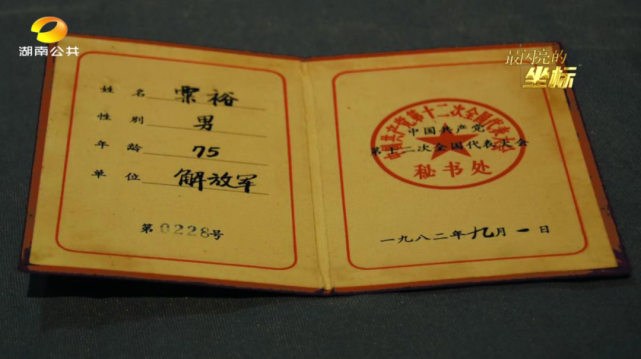 湖南公共
最闪亮的
坐标
姓名 粟裕
性别 男
年龄 75
单位 解放军
第0228号
中国共产党第十二次全国代表大会
中国共产党
第十二次全国代表大会
秘书处
一九八二年九月一日